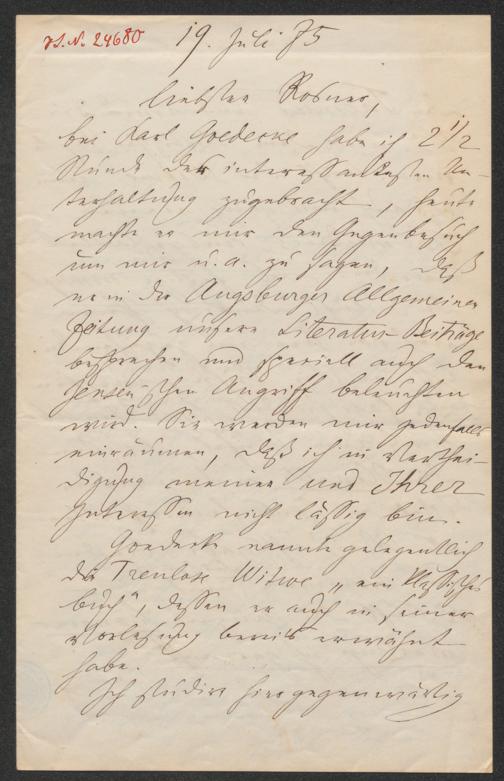 I.N. 24680
19. Juli 75
liebster Rosner,
bei Karl Goedecke habe ich 2 1/2
Stunde der interessantesten Un-
terhaltung zugebracht, heute
machte er mir den Gegenbesuch
um mir u. a. zu sagen, daß
er in der Augsburger Allgemeinen
Zeitung unsere Literatur-Beiträge
besprechen und speciell auch den
Jensen'schen Angriff beleuchten
wird. Sie werden mir jedenfalls
einräumen, daß ich in Verthei-
digung meiner und Ihrer
Interessen nicht lässig bin.
Goedecke nannte gelegentlich
die Treulose Witwe „ein klassisches
Buch", dessen er auch in seiner
Vorlesung bereits erwähnt
habe.
Ich studire hier gegenwärtig